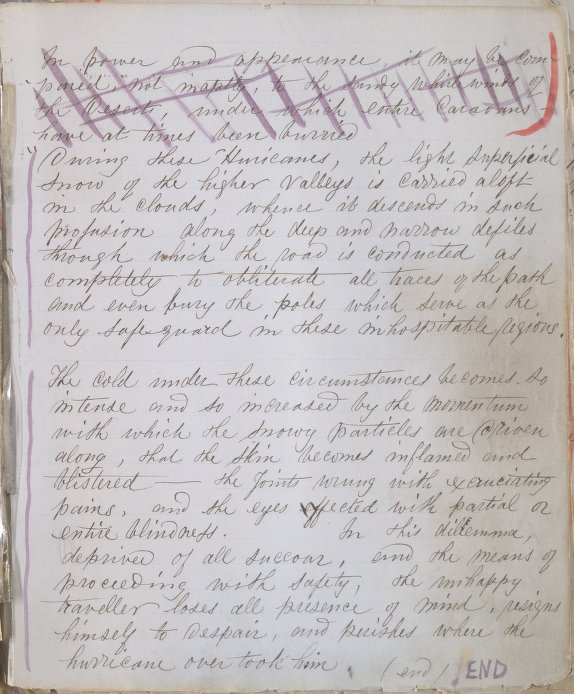 In power and appearance, it may be com-
pared, not inaptly, to the sandy whirlwinds of
the Desert under which entire Caravans
have at times been burried
"During these Huricanes, the light Superficial
Snow of the higher Valleys is carried aloft
in the clouds, whence it descends in such
profusion along the deep and narrow defiles
through which the road is conducted as
completely to obliterate all traces of the path
and even bury the poles which serve as the
only safe guard in these inhospitable regions.
The cold under these circumstances becomes so
intense and so increased by the momentum
with which the snowy particles are driven
along, that the Skin becomes inflamed and
blistered — the joints wrung with excruciating
pains, and the eyes affected with partial or
entire blindness. In this dillemma,
deprived of all succour, and the means of
proceeding with safety, the unhappy
traveller loses all presence of mind, resigns
himself to despair, and perishes where the
hurricane over took him. (end) END